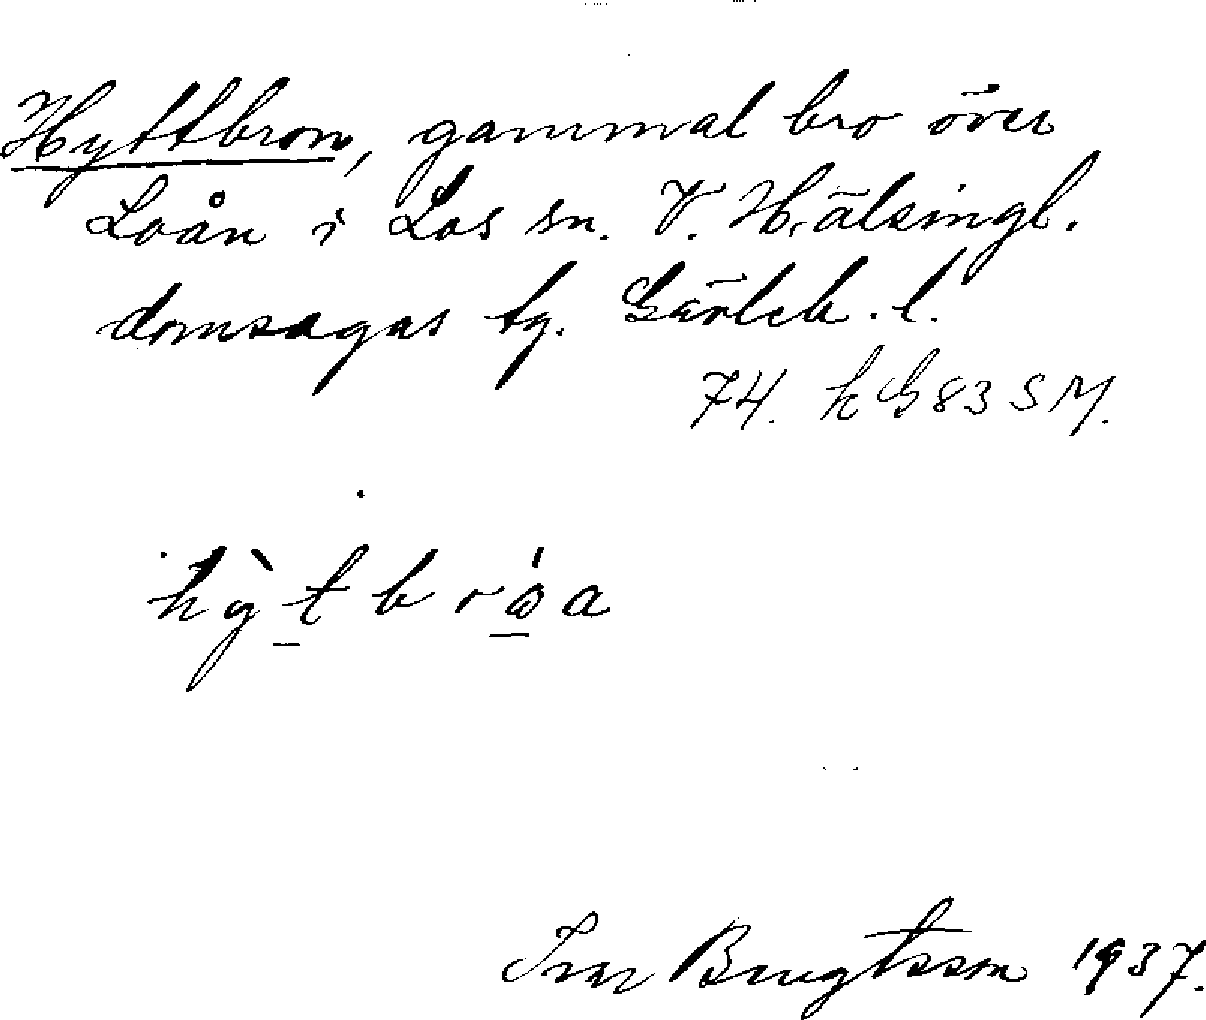 Hyttbron, gammal bro över
Loån i Los sn. V. Hälsingl.
domsagas tg. Gävleb. l.
74. h G 83 S M.
hỳt brǿa
Ivar Bengtsson 1937.